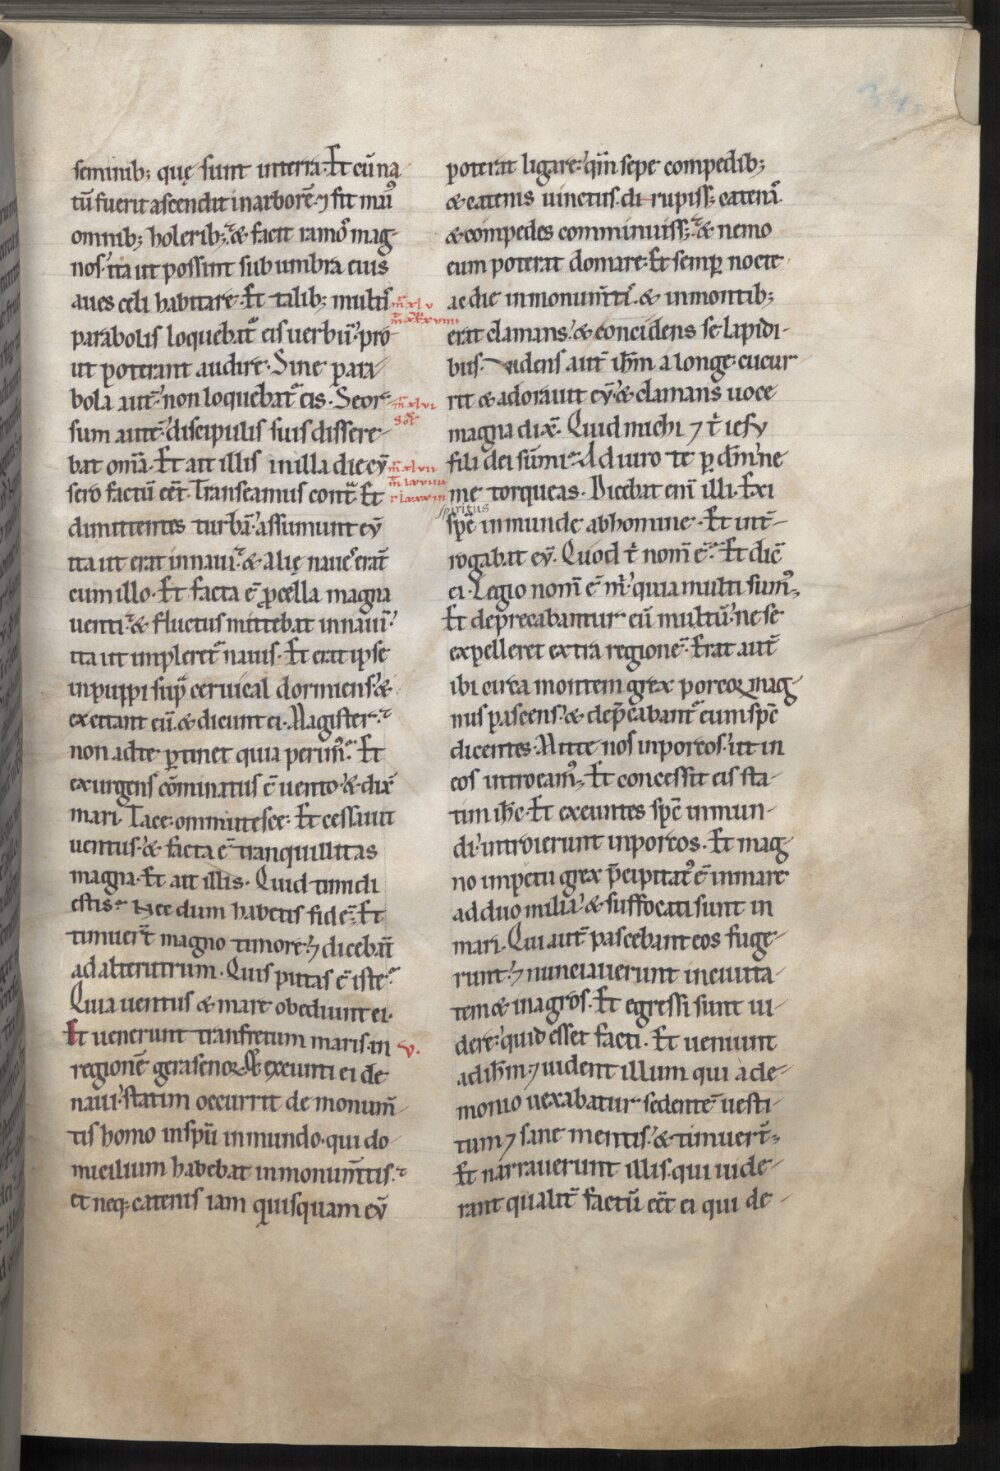 seminib; quę sunt interra. Et cū na
tū fuerit ascendit in arborē. ⁊ fit mai᷒
omnib; holerib;. & facit ramos mag
nos. ita ut possint sub umbra eius
aues celi habitare. Et talib; multis
parabolis loquebat᷑ eis uerbū. pro
ut poterant audire. Sine para
bola aut̄ non loquebat᷑ eis. Seor
sum autē discipulis suis dissere
bat om̄a. Et ait illis inilla die cū
sero factū eēt. Transeamus contra. Et
dimittentes turbā. assumunt eū
ita ut erat innaui. & alię naues erāt
cum illo. Et facta ē procella magna
uenti. & fluctus mittebat innauī.
ita ut impleret᷑ nauis. Et erat ipse
inpuppi sup̄ ceruical dormiens. &
excitant eū. & dicunt ei. Magister.
non adte ꝑtinet quia perim᷒. Et
exurgens cōminatus ē uento. & dix̄
mari. Tace. ommutesce. Et cessauit
uentus. & facta ē tranquillitas
magna. Et ait illis. Quid timidi
estis. Nec dum habetis fidē. Et
timuer̄t magno timore. ⁊ dicebāt
adalterutrum. Quis putas ē iste.
Quia uentus & mare obediunt ei.
Et uenerunt transfretum maris. in
regionē gerasenoꝝ. Et exeunti ei de
naui. statim occurrit de monum̄
tis homo inspū inmundo. qui do
micilium habebat inmonum̄tis.
et neq; catenis iam quisquam eū
v.
poterat ligare. qm̄ sepe compedib;
& catenis uinctus. dirupiss; catenas.
& compedes comminuiss;. & nemo
eum poterat domare. Et semp̄ nocte
ac die inmonum̄tis. & inmontib;
erat clamans. & concidens se lapidi
bus. Videns aut̄ ihm̄ a longe. cucur
rit & adorauit eū. & clamans uoce
magna dix̄. Quid michi ⁊ t̄ iesu
fili dei sūmi. Adiuro te ꝑ dm̄. ne
me torqueas. Dicebat enī illi. Exi
spiritus
spc̄ inmunde abhomine. Et int̄
rogabat eū. Quod t̄ nom̄ ē. Et dic̄
ei. Legio nom̄ ē m̄. quia multi sum᷒.
Et deprecabantur eū multū. ne se
expelleret extra regionē. Erat aut̄
ibi circa montem grex porcoꝝ mag
nus pascens. & dep̄cabant᷑ eum spc̄
dicentes. Mitte nos inporcos. ut in
eos introeam᷒. Et concessit eis sta
tim ihc̄. Et exeuntes spc̄ inmun
di. introierunt inporcos. Et mag
no impetu grex p̄cipitat᷒ ē inmare
ad duo milia. & suffocati sunt in
mari. Qui aut̄ pascebant eos fuge
runt. ⁊ nunciauerunt inciuita
tem & inagros. Et egressi sunt ui
dere. quid esset facti. Et ueniunt
adihm̄. ⁊ uident illum qui ade
monio uexabatur sedentē uesti
tum ⁊ sane mentis. & timuer̄t.
Et narrauerunt illis. qui uide
rant qualit̄ factū eēt ei qui de